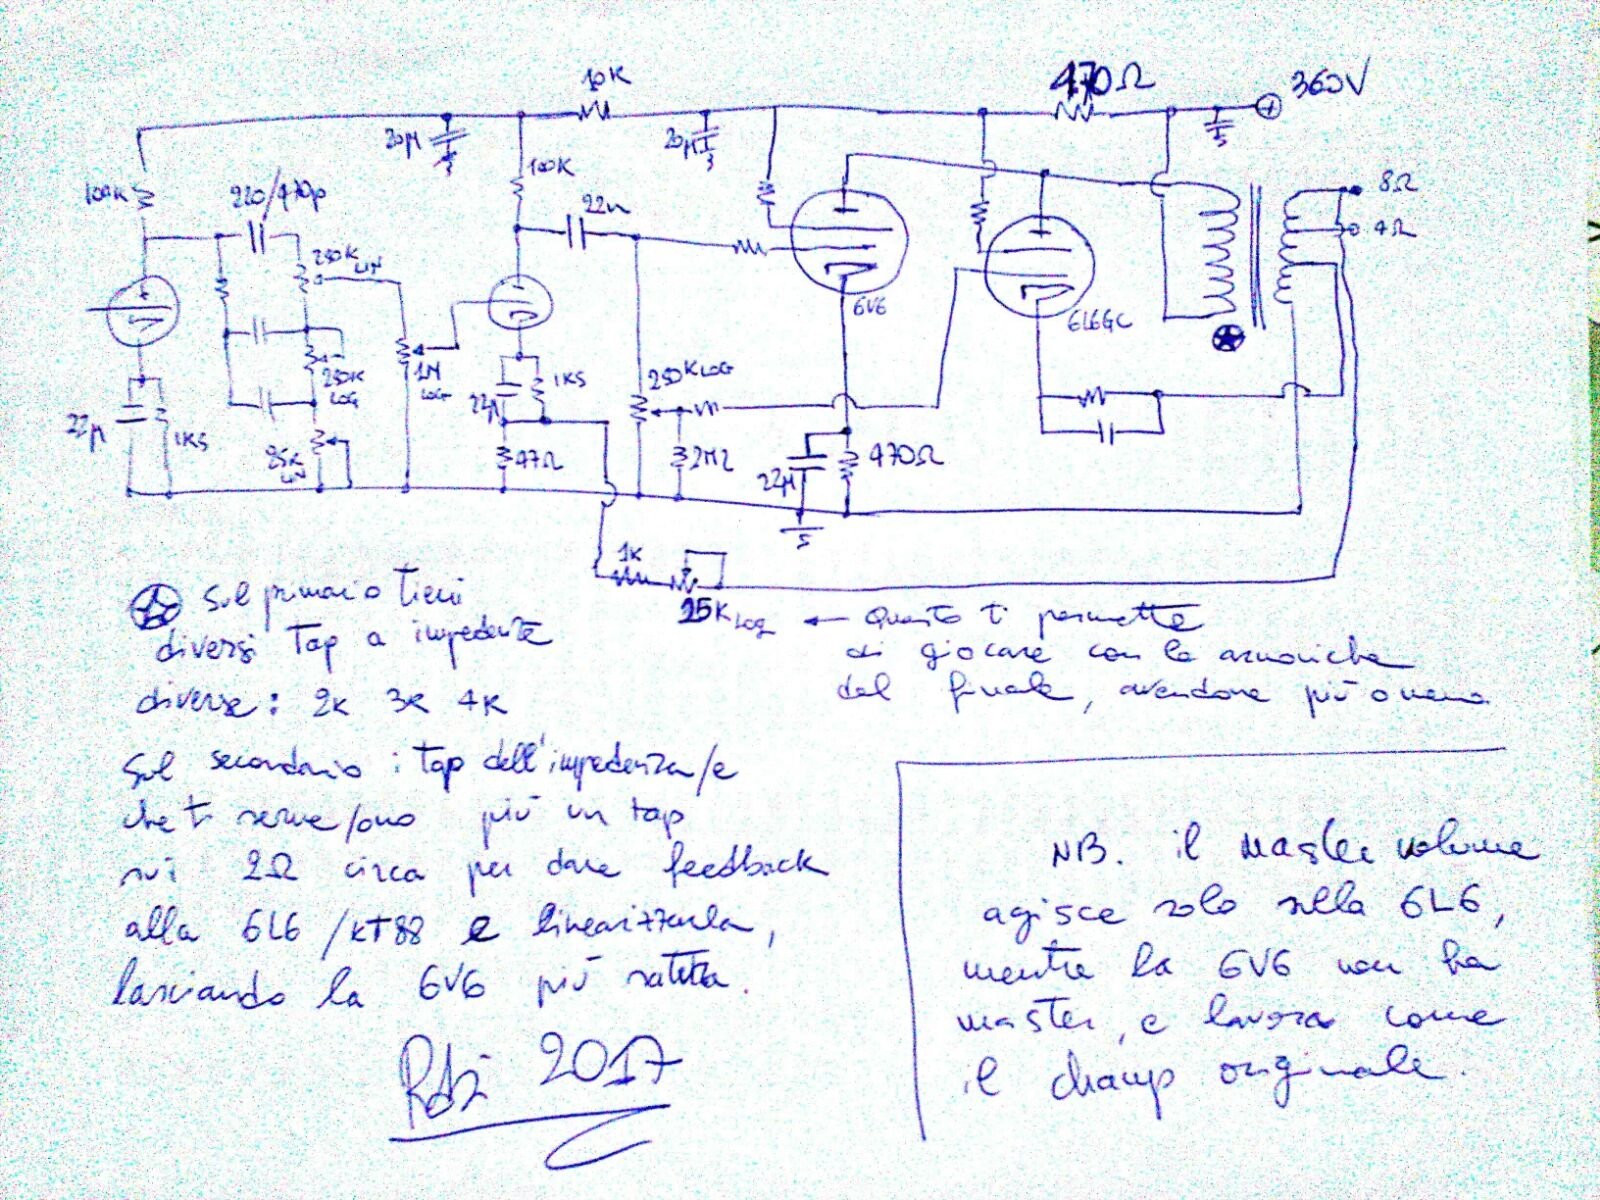 10K
470Ω
360V
20µ
20µ
100K
100K
220/470p
22n
8Ω
4Ω
250K
LIN
6V6
6L6GC
250K
LOG
1M
LOG
1K5
22µ
250K LOG
22µ
1K5
25K
LIN
47Ω
2M2
22µ
470Ω
1K
25K LOG ← Questo ti permette
di giocare con le armoniche
del finale, avendone più o meno
Sul primario tieni
diversi tap a impedenze
diverse: 2K 3K 4K
Sul secondario i tap dell'impedenza/e
che ti serve/ono più un tap
sui 2Ω circa per dare feedback
alla 6L6/KT88 e linearizzarla,
lasciando la 6V6 più satura.
2017
NB. il master volume
agisce solo sulla 6L6,
mentre la 6V6 non ha
master, e lavora come
il champ originale.